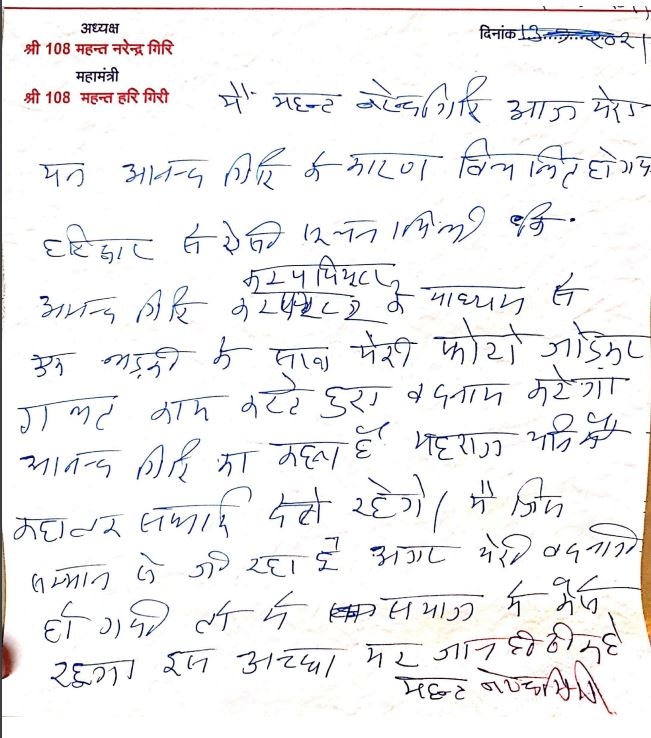 अध्यक्ष
श्री 108 महन्त नरेन्द्र गिरि
महामंत्री
श्री 108 महन्त हरि गिरी
दिनांक 13 2021
मैं महन्ट नरेन्द्र गिरि आज मेरा
मन आनन्द गिरि के कारण विचलित हो गय
हरिद्वार से ऐसी सूचना मिली कि
कम्पयियूटर
आनन्द गिरि के माध्यम से
एक लड़की के साथ मेरी फोटो जोड़कर
गलट काम करटे हुए वदनाम करेगा
आनन्द गिरि का कहना है महराज यानि मैं
कहा तक सफाई देटे रहेगे। मैं जिस
सम्मान से जी रहा हूँ अगर मेरी वदनामी
हो गयी तो मैं समाज में कैसे
रहूगा इस अच्छा मर जाना ही ठीक है
महन्ट नरेन्द्र गिरि